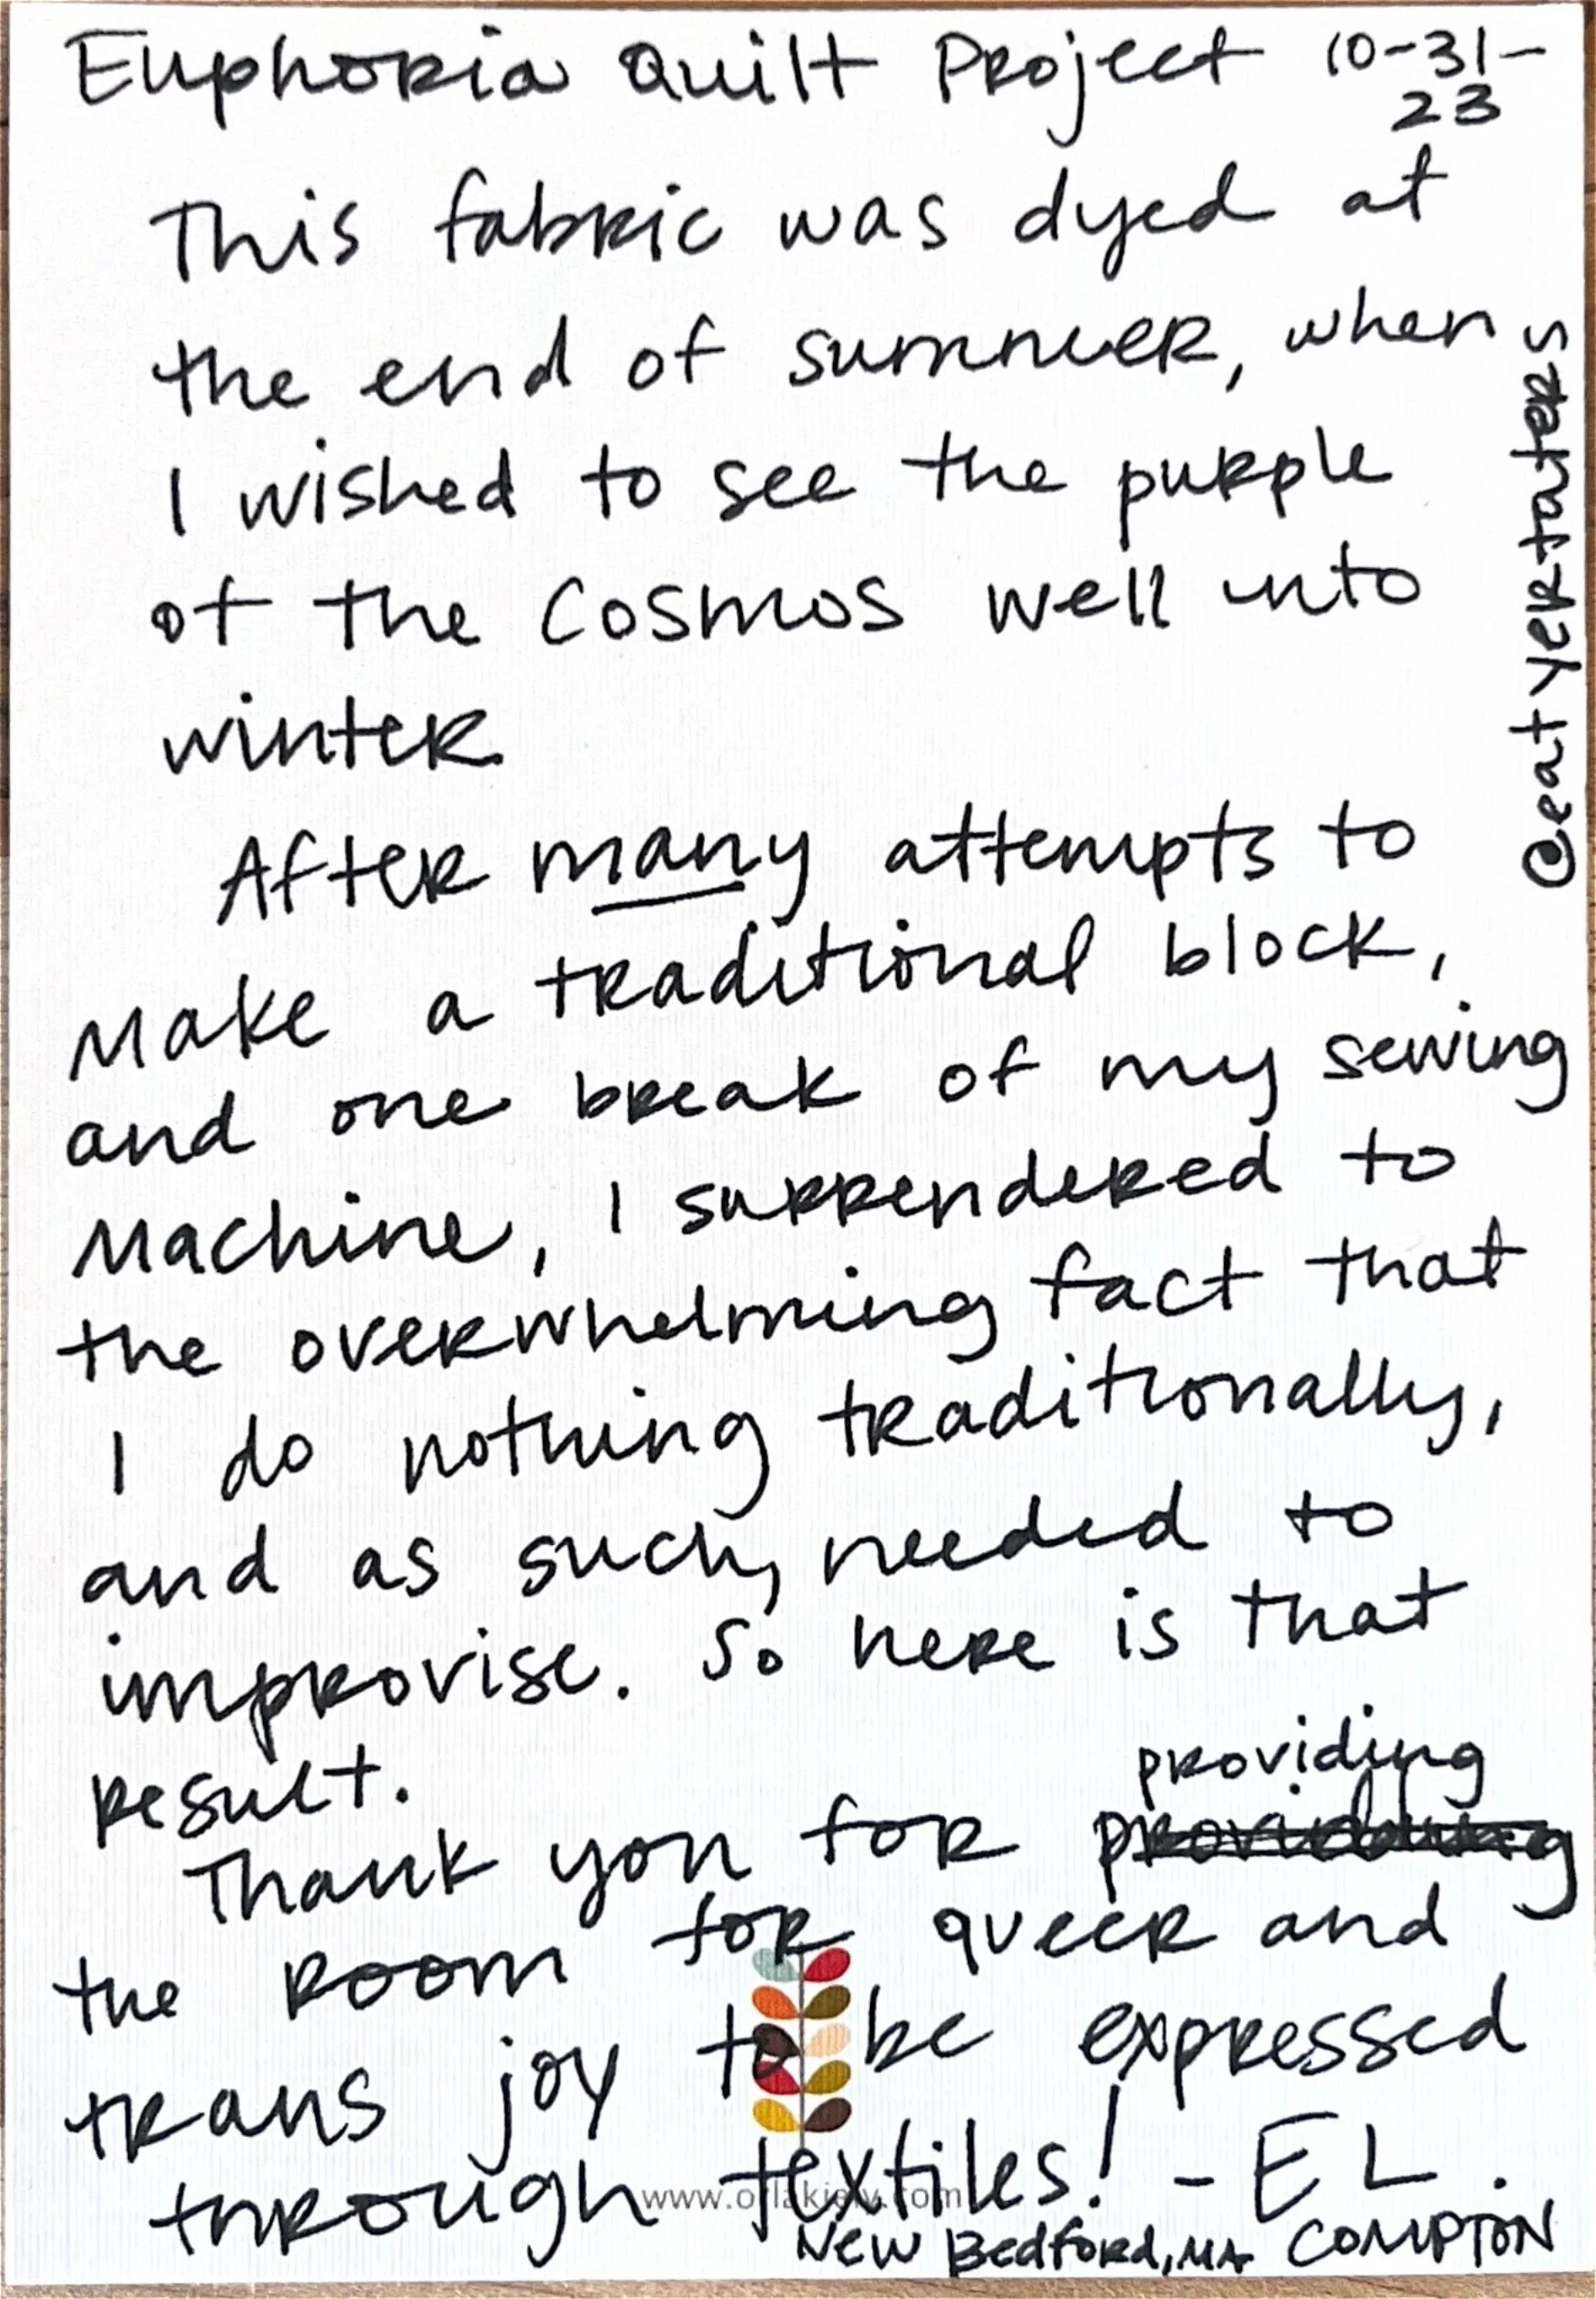 Euphoria Quilt Project 10-31-
23
This fabric was dyed at
the end of summer, when
I wished to see the purple
of the Cosmos well into
winter.
After many attempts to
Make a traditional block,
and one break of my sewing
Machine, I surrendered to
the overwhelming fact that
I do nothing traditionally,
and as such, needed to
improvise. So here is that
result.
providing
Thank you for providing
the room for queer and
trans joy to be expressed
through textiles! - EL.
www.orlakiely.com
New Bedford, MA COMPTON
@eatyertaters